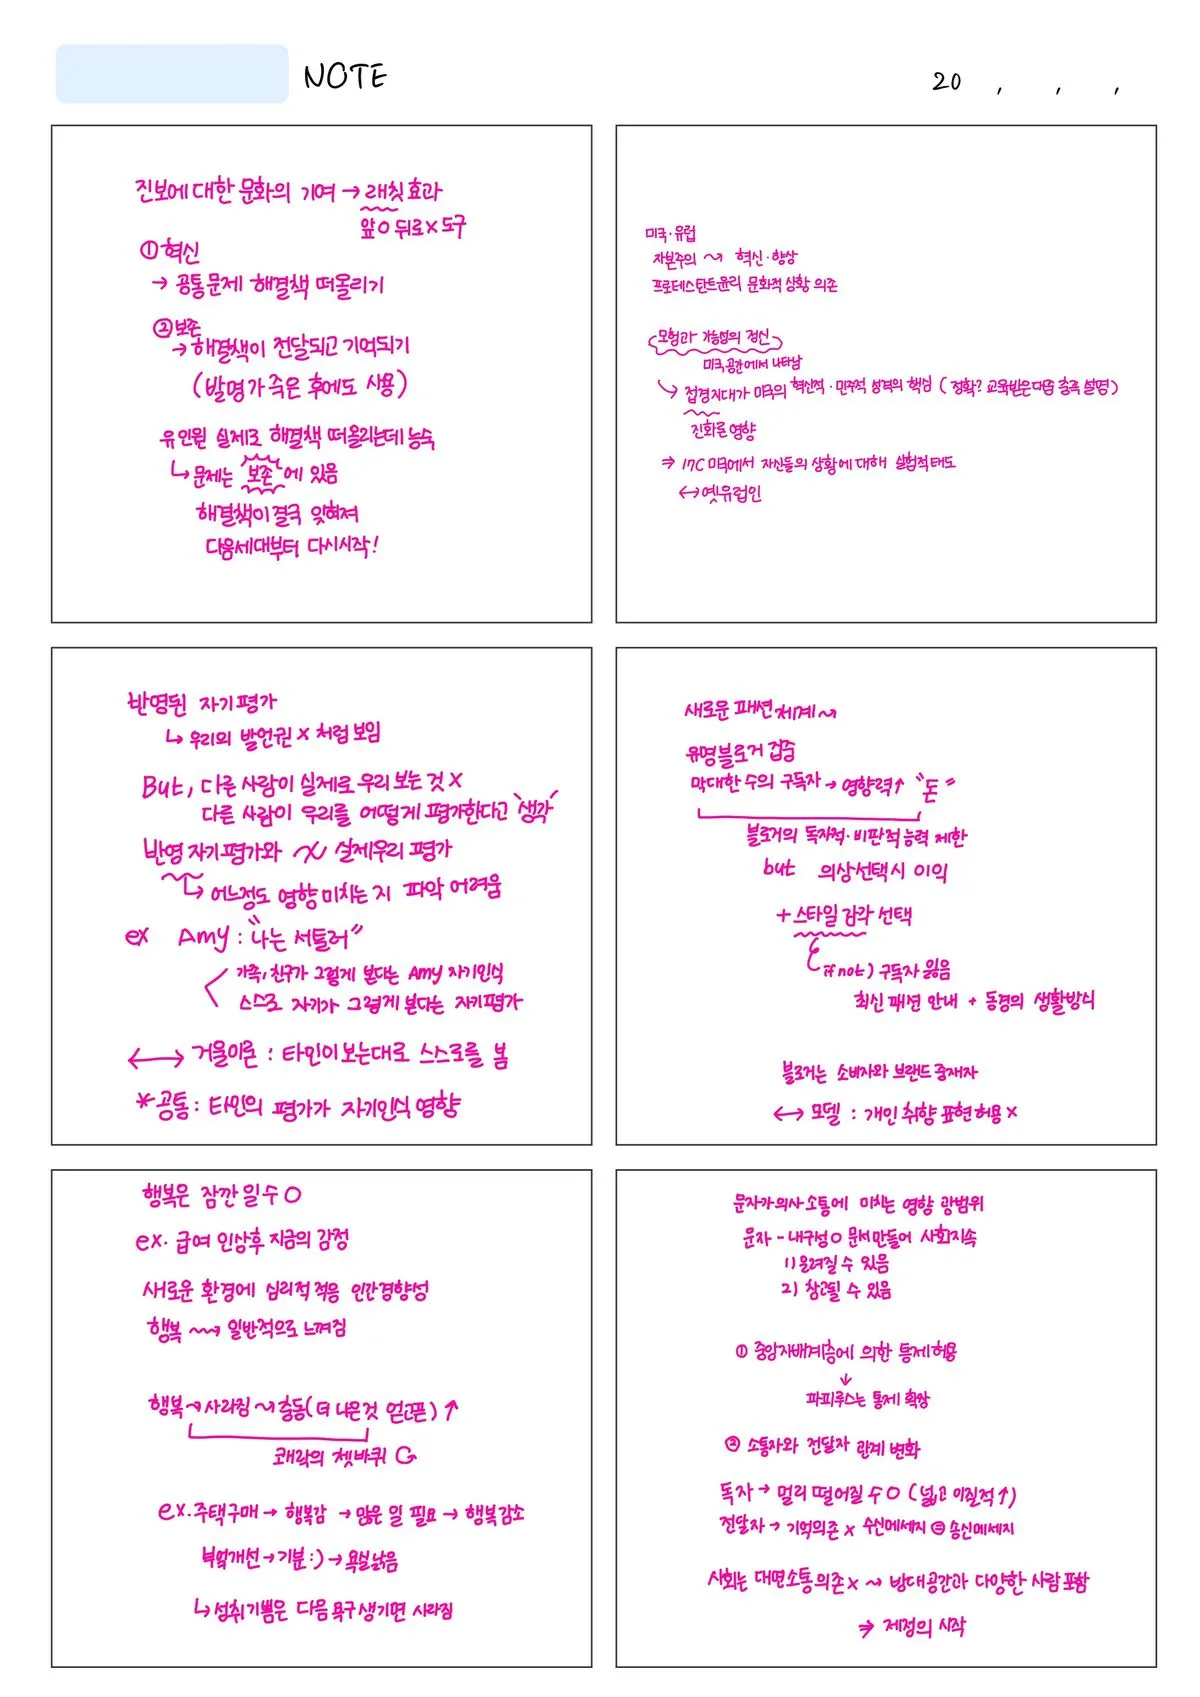 NOTE
20 , , ,
진보에 대한 문화의 기여 → 래칫효과
앞 O 뒤로 X 도구
① 혁신
→ 공통문제 해결책 떠올리기
② 보존
→ 해결책이 전달되고 기억되기
(발명가 죽은 후에도 사용)
유인원 실제로 해결책 떠올리는데 능숙
↳ 문제는 보존에 있음
해결책이 결국 잊혀져
다음세대부터 다시시작!
미국·유럽
자본주의 ⤳ 혁신·향상
프로테스탄트윤리 문화적 상황 의존
모험과 가능성의 정신
미국 공간에서 나타남
↳ 접경지대가 미국의 혁신적·민주적 성격의 핵심 (정확? 교육받은다음 충족 설명)
진화론 영향
⇒ 17C 미국에서 자신들의 상황에 대해 실험적태도
↔ 옛유럽인
반영된 자기평가
↳ 우리의 발언권 X 처럼 보임
But, 다른 사람이 실제로 우리 보는 것 X
다른 사람이 우리를 어떻게 평가한다고 '생각'
반영 자기평가와 실제우리 평가
↳ 어느정도 영향 미치는 지 파악 어려움
ex Amy : "나는 서툴러"
가족, 친구가 그렇게 본다는 Amy 자기인식
스스로 자기가 그렇게 본다는 자기평가
↔ 거울이론 : 타인이 보는대로 스스로를 봄
*공통 : 타인의 평가가 자기인식 영향
새로운 패션 체계 ⤳
유명블로거 급증
막대한 수의 구독자 → 영향력↑ "돈"
블로거의 독자적·비판적 능력 제한
but 의상선택시 이익
+ 스타일 감각 선택
if not) 구독자 잃음
최신 패션 안내 + 동경의 생활방식
블로거는 소비자와 브랜드 중재자
↔ 모델 : 개인 취향 표현 허용 X
행복은 잠깐 일수 O
ex. 급여 인상후 지금의 감정
새로운 환경에 심리적 적응 인간경향성
행복 ⤳ 일반적으로 느껴짐
행복 ⤳ 사라짐 ⤳ 충동(더 나은것 얻고픈) ↑
쾌락의 쳇바퀴
ex. 주택구매 → 행복감 → 많은 일 필요 → 행복감소
부엌개선 → 기분 :) → 욕실낡음
↳ 성취기쁨은 다음 욕구 생기면 사라짐
문자가 의사소통에 미치는 영향 광범위
문자 - 내구성O 문서만들어 사회지속
1) 옮려질 수 있음
2) 참고될 수 있음
① 중앙지배계층에 의한 통제 허용
↓
파피루스는 통제 확장
② 소통자와 전달자 관계 변화
독자 → 멀리 떨어질 수 O (넓고 이질적↑)
전달자 → 기억의존 X 수신메세지 = 송신메세지
사회는 대면소통의존 X ⤳ 방대공간과 다양한 사람 포함
⇒ 제정의 시작